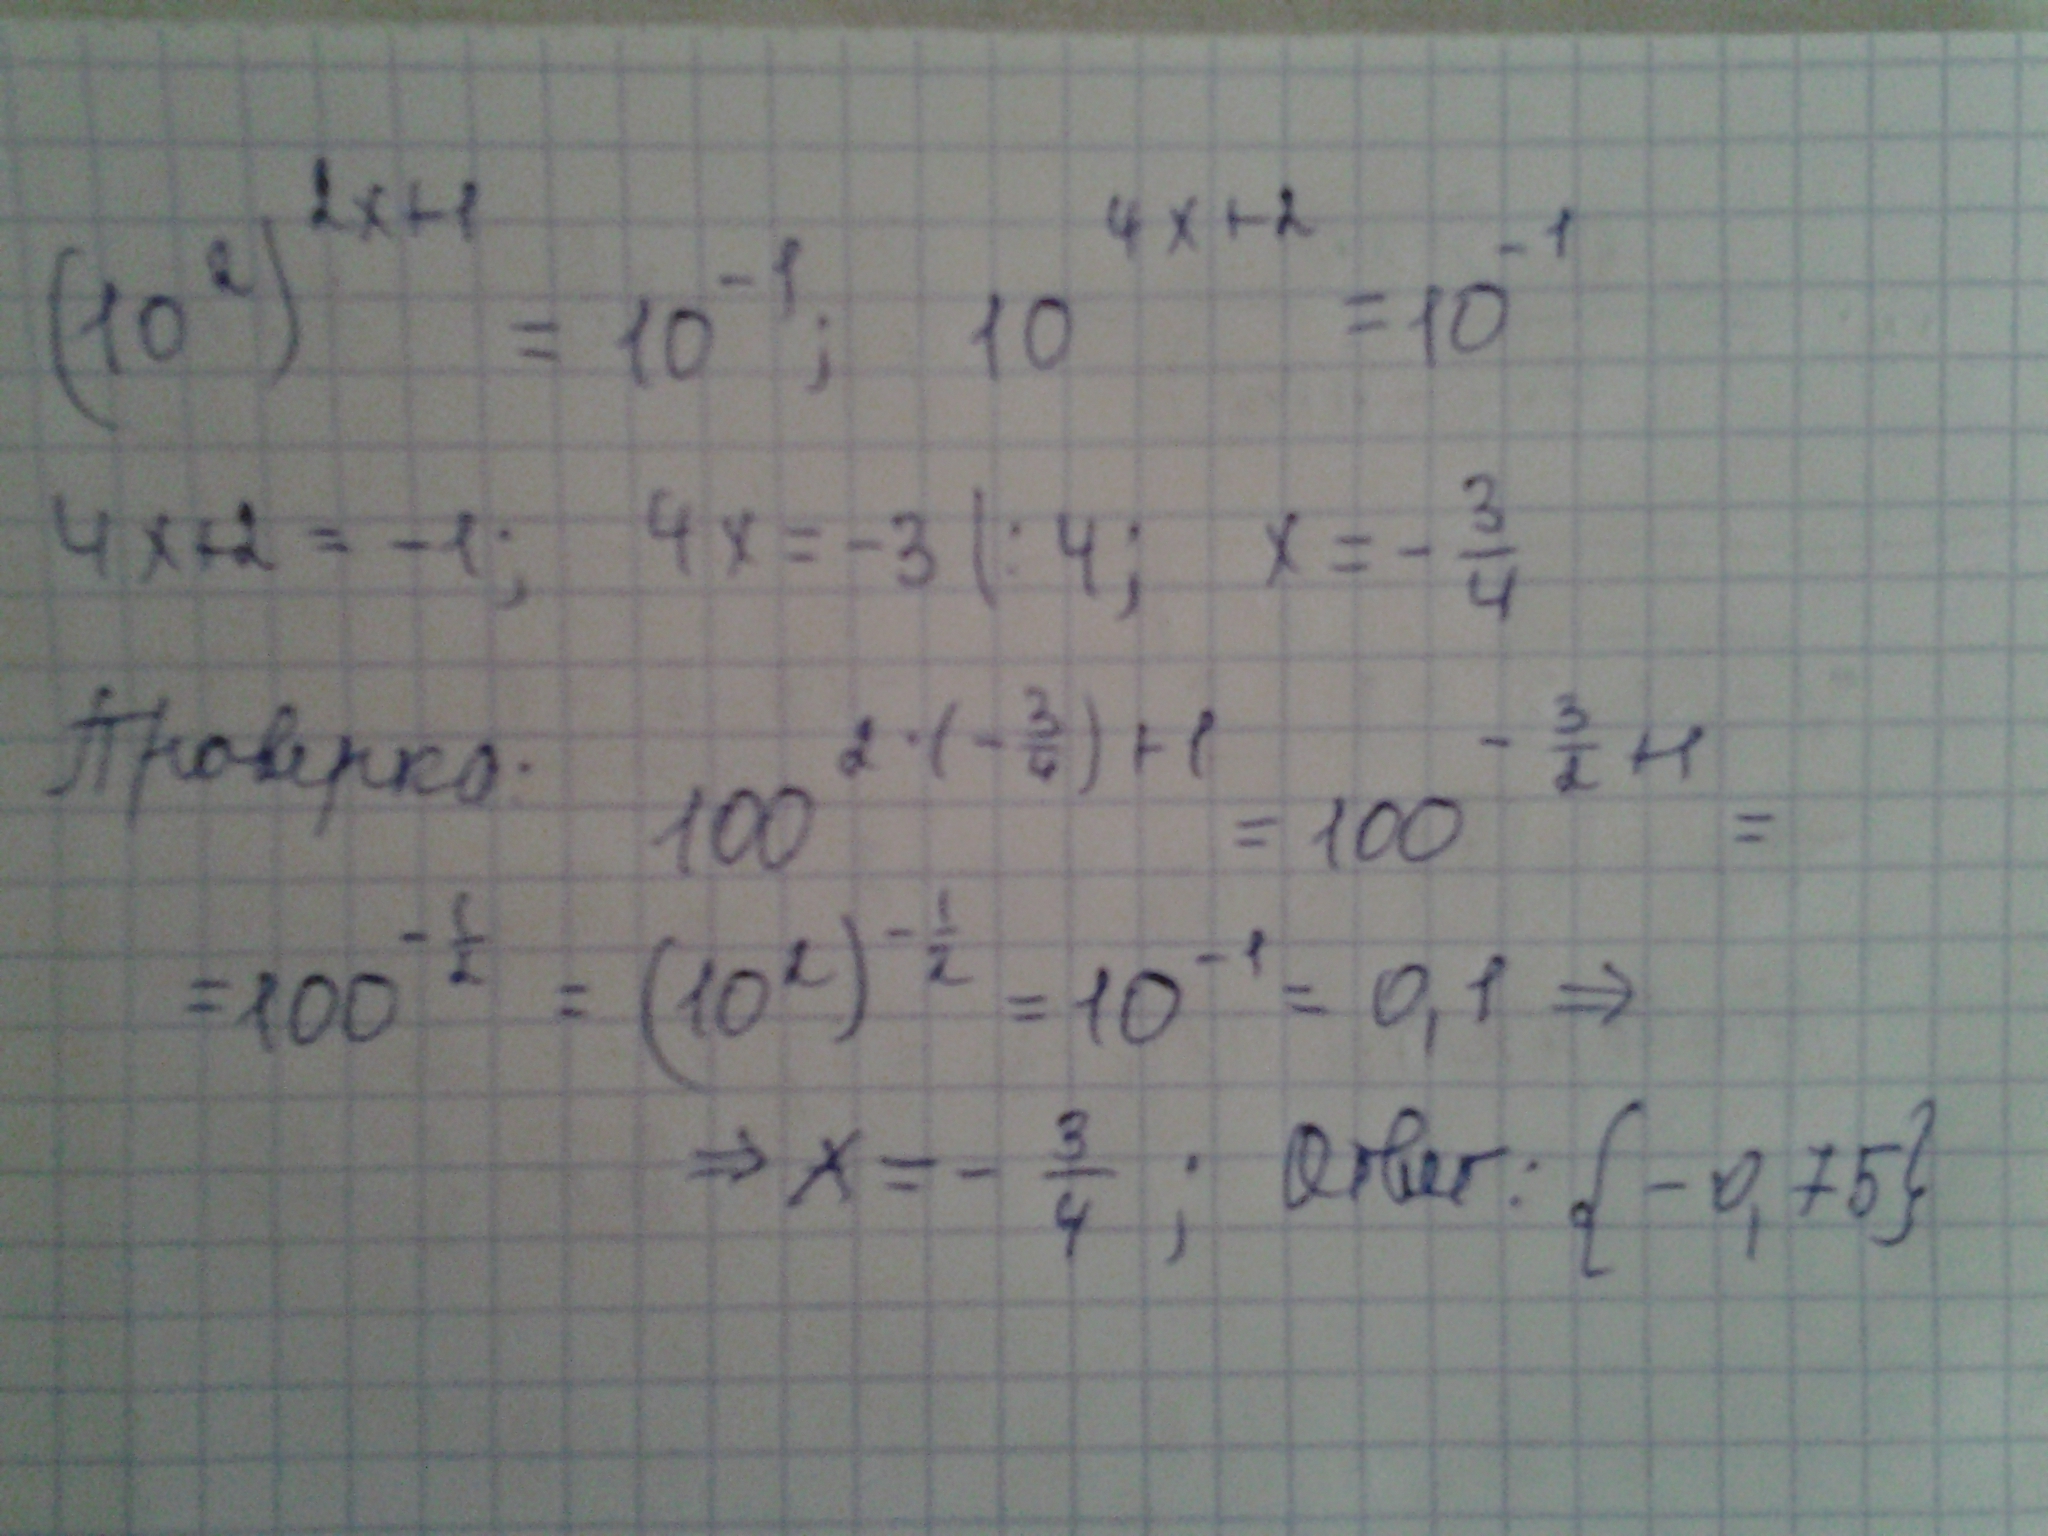 (10²)^(2x+1) = 10^(-1); 10^(4x+2) = 10^(-1)
4x+2 = -1; 4x = -3 |:4; x = -3/4
Проверка: 100^(2·(-3/4)+1) = 100^(-3/2+1) =
= 100^(-1/2) = (10²)^(-1/2) = 10^(-1) = 0,1 ⇒
⇒ x = -3/4; Ответ: {-0,75}